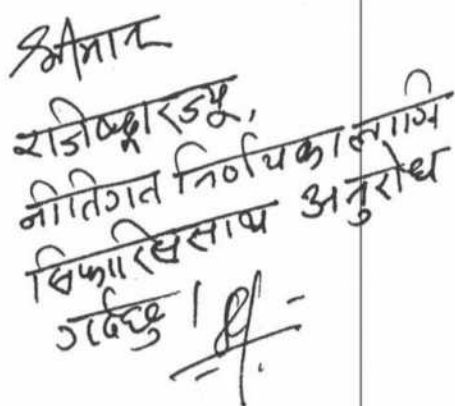 श्रीमान
रजिष्ट्रारज्यू,
नीतिगत निर्णयका लागि
सिफारिससाथ अनुरोध
गर्दछु ।